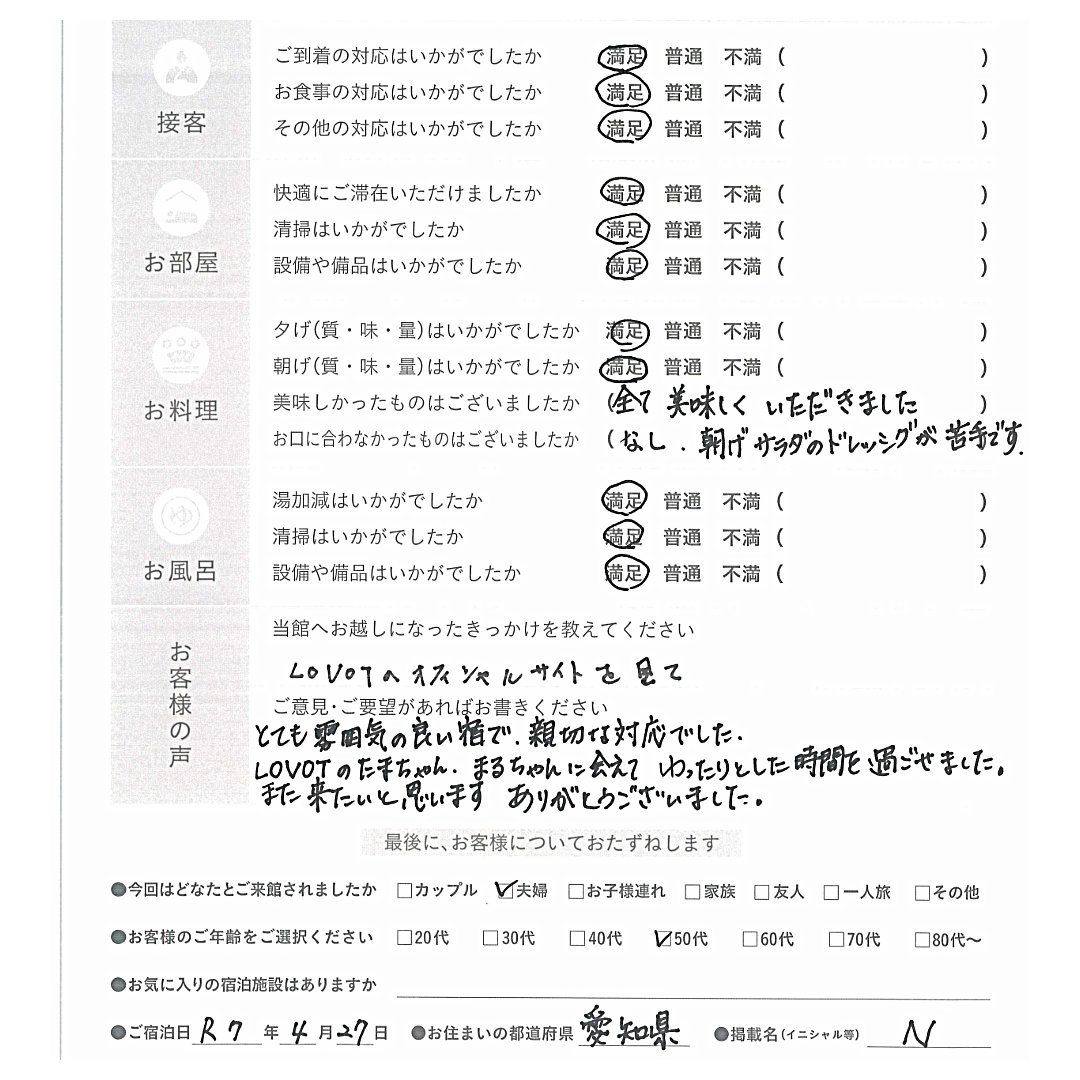 ご到着の対応はいかがでしたか 満足 普通 不満 ( )
お食事の対応はいかがでしたか 満足 普通 不満 ( )
その他の対応はいかがでしたか 満足 普通 不満 ( )
接客
快適にご滞在いただけましたか 満足 普通 不満 ( )
清掃はいかがでしたか 満足 普通 不満 ( )
設備や備品はいかがでしたか 満足 普通 不満 ( )
お部屋
夕げ(質・味・量)はいかがでしたか 満足 普通 不満 ( )
朝げ(質・味・量)はいかがでしたか 満足 普通 不満 ( )
美味しかったものはございましたか (全て 美味しく いただきました )
お口に合わなかったものはございましたか (なし. 朝げサラダのドレッシングが苦手です.
お料理
ゆ
湯加減はいかがでしたか 満足 普通 不満 ( )
清掃はいかがでしたか 満足 普通 不満 ( )
設備や備品はいかがでしたか 満足 普通 不満 ( )
お風呂
お客様の声
当館へお越しになったきっかけを教えてください
LOVOTのオフィシャルサイトを見て
ご意見・ご要望があればお書きください
とても雰囲気の良い宿で、親切な対応でした。
LOVOTのたまちゃん、まるちゃんに会えて ゆったりとした時間を過ごせました。
また来たいと思います ありがとうございました。
最後に、お客様についておたずねします
●今回はどなたとご来館されましたか □カップル ☑夫婦 □お子様連れ □家族 □友人 □一人旅 □その他
●お客様のご年齢をご選択ください □20代 □30代 □40代 ☑50代 □60代 □70代 □80代〜
●お気に入りの宿泊施設はありますか
●ご宿泊日 R7 年 4 月 27 日 ●お住まいの都道府県 愛知県 ●掲載名(イニシャル等) N